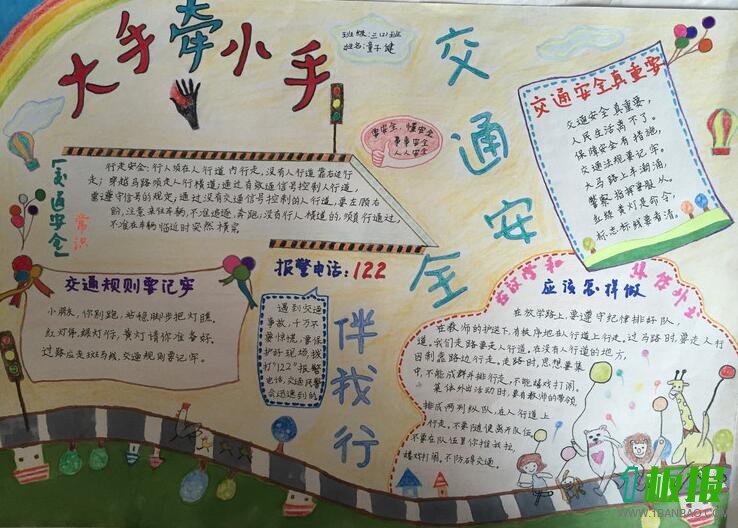 大手牵小手
班级:三(2)班
姓名:童子健
交通安全
伴我行
要安全,懂安全
事事安全
人人安全
【交通安全】
常识
行走安全:行人须在人行道内行走,没有人行道靠右边行
走;穿越马路须走人行横道;通过有交通信号控制人行道,
需遵守信号的规定;通过没有交通信号控制的人行道,要左顾右
盼,注意来往车辆,不准追逐、奔跑;没有人行横道的,须直行通过,
不准在车辆临近时突然横穿。
交通安全真重要
交通安全真重要,
人民生活离不了。
保障安全有措施,
交通法规要记牢。
大马路上车潮涌,
警察指挥要服从。
红绿黄灯是命令,
标志标线要看清。
交通规则要记牢
小朋友,你别跑,站稳脚步把灯瞧。
红灯停,绿灯行,黄灯请你准备好。
过路应走斑马线,交通规则要记牢。
报警电话:122
遇到交通
事故,千万不
要惊慌,要保
护好现场,拨
打“122”报警
电话,交通民警
会迅速到的
在放学和
集体外出
应该怎样做
在放学路上,要遵守纪律排好队,
在教师的护送下,有秩序地在人行道上行走。过马路时,要走人行
道。我们走路要走人行道。在没有人行道的地方,
因则靠路边行走。走路时,思想要集
中,不能成群并排行走,不能嬉戏打闹。
集体外出活动时,要有教师的带领
排成两列纵队,在人行道上
行走,不要随便离开队伍,
不要在队伍里你推我拉,
嬉戏打闹,不防碍交通。
个板报
WWW.1BANBAO.COM